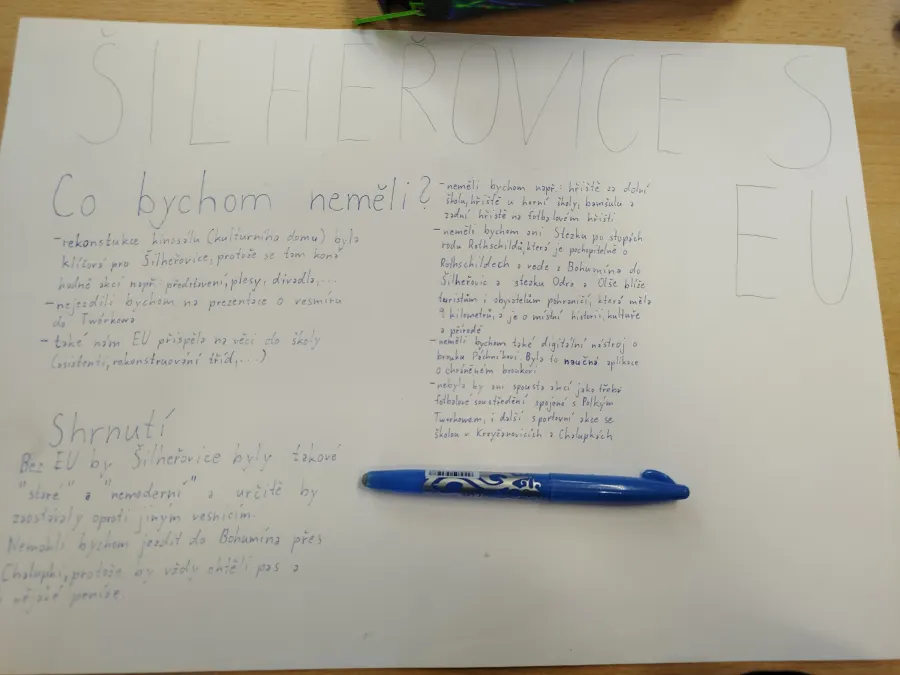 ŠILHEŘOVICE S
EU
Co bychom neměli?
- rekonstukce kinosálu (kulturnína domu) byla
klíčová pro Šilheřovice, protože se tam koná
hodně akcí např. představení, plesy, divadla,...
- nejezdili bychom na prezentace o vesmíru
do Tworkowa
- také nám EU přispěla na věci do školy
(asistenti, rekonstruování tříd,...)
- neměli bychom např.: hřiště za dolní
školu, hřiště u horní školy, a
zadní hřiště na fotbalovém hřišti
- neměli bychom ani Stezku po stopách
rodu Rothschildů, která je pochopitelně o
Rothschildech a vede z Bohumína do
Šilheřovic a stezku Odra a Olše blíže
turistům i obyvatelům pohraničí, která měla
9 kilometrů, a je o místní historii, kultuře
a přírodě
- neměli bychom také digitální nástroj o
brouku Páchníkovi. Byla to naučná aplikace
o chráněném broukovi
- nebyla by ani spousta akcí jako třeba
fotbalové soustředění spojené s Polkým
Tworkowem, i další sportovní akce se
školou v Krzyżanovicích a Chalupkách
Shrnutí
Bez EU by Šilheřovice byly takové
"staré" a "nemoderní" a určitě by
zaostávaly oproti jiným vesnicím.
Nemohli bychom jezdit do Bohumína přes
Chalupki, protože by vždy chtěli pas a
nějaké peníze.